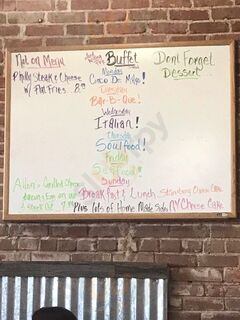 Not on Menu
Philly Steak & Cheese
w/ Flat Fries
Buffet
Monday
Cinco De Mayo!
Tuesday
Bar-B-Que!
Wednesday
Italian!
Thursday
Soulfood!
Friday
Seafood!
Sunday
Breakfast & Lunch
Plus Lots of Home Made Sides
Don't Forget
Dessert
Strawberry Cheese Cake
NY Cheese Cake